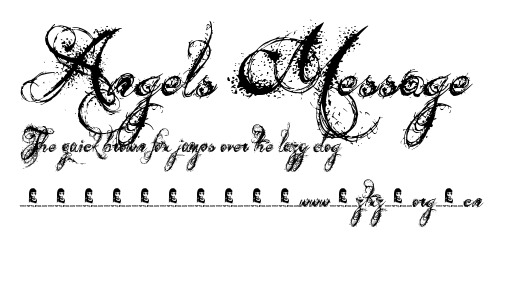 Angels Message
The quick brown fox jumps over the lazy dog
www zhz org cn